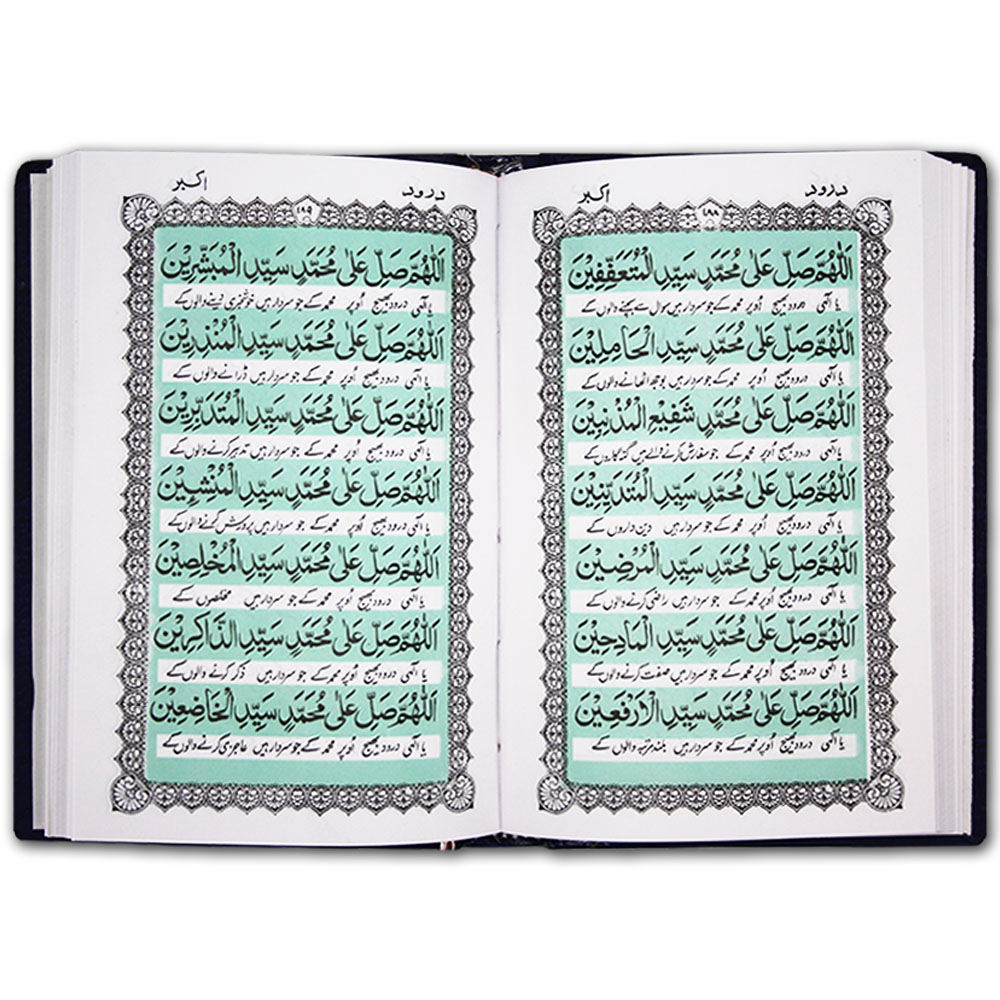 درود اکبر
۱۸۸
اَللّٰهُمَّ صَلِّ عَلٰى مُحَمَّدٍ سَيِّدِ الْمُتَعَفِّفِيْنَ
یا الٰہی درود بھیج اُوپر محمد کے جو سردار ہیں سوال سے بچنے والوں کے
اَللّٰهُمَّ صَلِّ عَلٰى مُحَمَّدٍ سَيِّدِ الْحَامِلِيْنَ
یا الٰہی درود بھیج اُوپر محمد کے جو سردار ہیں بوجھ اٹھانے والوں کے
اَللّٰهُمَّ صَلِّ عَلٰى مُحَمَّدٍ شَفِيْعِ الْمُذْنِبِيْنَ
یا الٰہی درود بھیج اُوپر محمد کے جو سفارش کرنے والے ہیں گنہگاروں کے
اَللّٰهُمَّ صَلِّ عَلٰى مُحَمَّدٍ سَيِّدِ الْمُتَدَيِّنِيْنَ
یا الٰہی درود بھیج اُوپر محمد کے جو سردار ہیں دین داروں کے
اَللّٰهُمَّ صَلِّ عَلٰى مُحَمَّدٍ سَيِّدِ الْمُرْضِيْنَ
یا الٰہی درود بھیج اُوپر محمد کے جو سردار ہیں راضی کرنے والوں کے
اَللّٰهُمَّ صَلِّ عَلٰى مُحَمَّدٍ سَيِّدِ الْمَادِحِيْنَ
یا الٰہی درود بھیج اُوپر محمد کے جو سردار ہیں صفت کرنے والوں کے
اَللّٰهُمَّ صَلِّ عَلٰى مُحَمَّدٍ سَيِّدِ الْاَرْفَعِيْنَ
یا الٰہی درود بھیج اُوپر محمد کے جو سردار ہیں بلند مرتبہ والوں کے
درود اکبر
اَللّٰهُمَّ صَلِّ عَلٰى مُحَمَّدٍ سَيِّدِ الْمُبَشِّرِيْنَ
یا الٰہی درود بھیج اُوپر محمد کے جو سردار ہیں خوشخبری دینے والوں کے
اَللّٰهُمَّ صَلِّ عَلٰى مُحَمَّدٍ سَيِّدِ الْمُنْذِرِيْنَ
یا الٰہی درود بھیج اُوپر محمد کے جو سردار ہیں ڈرانے والوں کے
اَللّٰهُمَّ صَلِّ عَلٰى مُحَمَّدٍ سَيِّدِ الْمُتَدَبِّرِيْنَ
یا الٰہی درود بھیج اُوپر محمد کے جو سردار ہیں تدبیر کرنے والوں کے
اَللّٰهُمَّ صَلِّ عَلٰى مُحَمَّدٍ سَيِّدِ الْمُنْشِئِيْنَ
یا الٰہی درود بھیج اُوپر محمد کے جو سردار ہیں پرورش کرنے والوں کے
اَللّٰهُمَّ صَلِّ عَلٰى مُحَمَّدٍ سَيِّدِ الْمُخْلِصِيْنَ
یا الٰہی درود بھیج اُوپر محمد کے جو سردار ہیں مخلصوں کے
اَللّٰهُمَّ صَلِّ عَلٰى مُحَمَّدٍ سَيِّدِ الذَّاكِرِيْنَ
یا الٰہی درود بھیج اُوپر محمد کے جو سردار ہیں ذکر کرنے والوں کے
اَللّٰهُمَّ صَلِّ عَلٰى مُحَمَّدٍ سَيِّدِ الْخَاضِعِيْنَ
یا الٰہی درود بھیج اُوپر محمد کے جو سردار ہیں عاجزی کرنے والوں کے